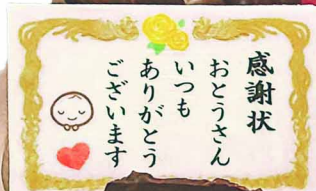 感謝状
おとうさん
いつも
ありがとう
ございます